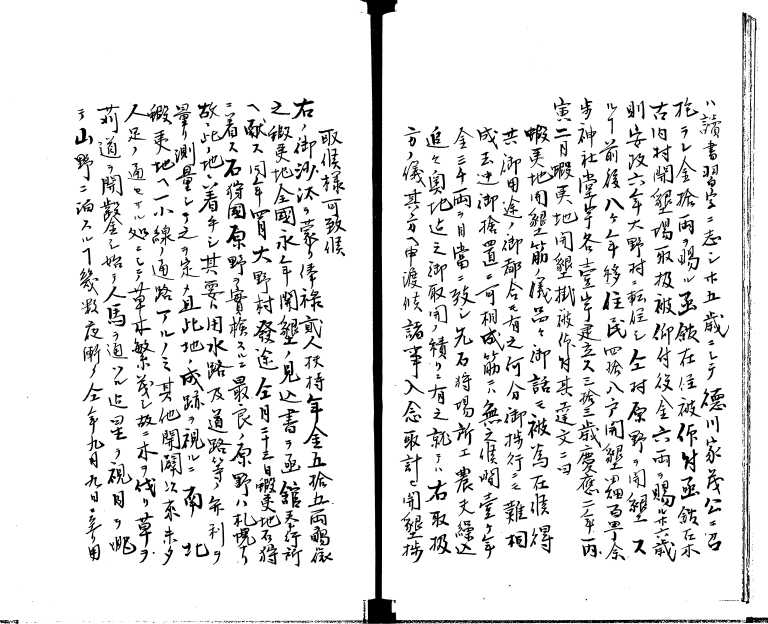 ハ讀書習字ニ志シ廿五歳ニシテ德川家茂公ニ召
抱ラレ金拾両ヲ賜ル函館在住被仰付函館在木
古内村開墾場取扱被仰付役金六両ヲ賜ル廿六歳
則安政六年大野村ニ転住シ仝村原野ヲ開墾ス
ル丁前後八ケ年移住民四拾八戸開墾畑百町余
歩神社堂宇各壹宇建立ス三拾三歳慶應二年丙
寅二月蝦夷地開墾掛被仰付其達文ニ曰
蝦夷地開墾筋ノ儀品々御話モ被為在候得
共御用途ノ御都合モ有之何分御捗行ニモ難相
成去迚御捨置ニ可相成筋ニハ無之候間壹ケ年
金三千両ヲ目當ニ致シ先石狩場所エ農夫繰込
追々奥地迄モ御取開ノ積リニ有之就テハ右取扱
方ノ儀其方ヘ申渡候諸事入念取計開墾捗
取候様可致候
右ノ御沙汰ヲ蒙リ俸祿貳人扶持年金五拾五両賜徴
之蝦夷地全國永年開墾ノ見込書ヲ函館奉行所
ヘ献ス同年四月大野村發途仝月二十三日蝦夷地石狩
ニ着ス石狩國原野ヲ實檢スルニ最良ノ原野ハ札幌ナリ
故ニ此ノ地ニ着手シ其要ノ用水路及道路等ノ弁利ヲ
量リ測量シテ之ヲ定ム且此地ノ成跡ヲ視ルニ南北
蝦夷地ヘ一小線ノ通路アルノミ其他開闢以來未タ
人足ノ通セサル処ニシテ草木繁茂シ故ニ木ヲ伐リ草ヲ
苅道ヲ開鑿シ始テ人馬ヲ通ツル迄星ヲ視月ヲ眺
テ山野ニ泊スル丁幾数夜漸ク仝年九月九日ニ至用